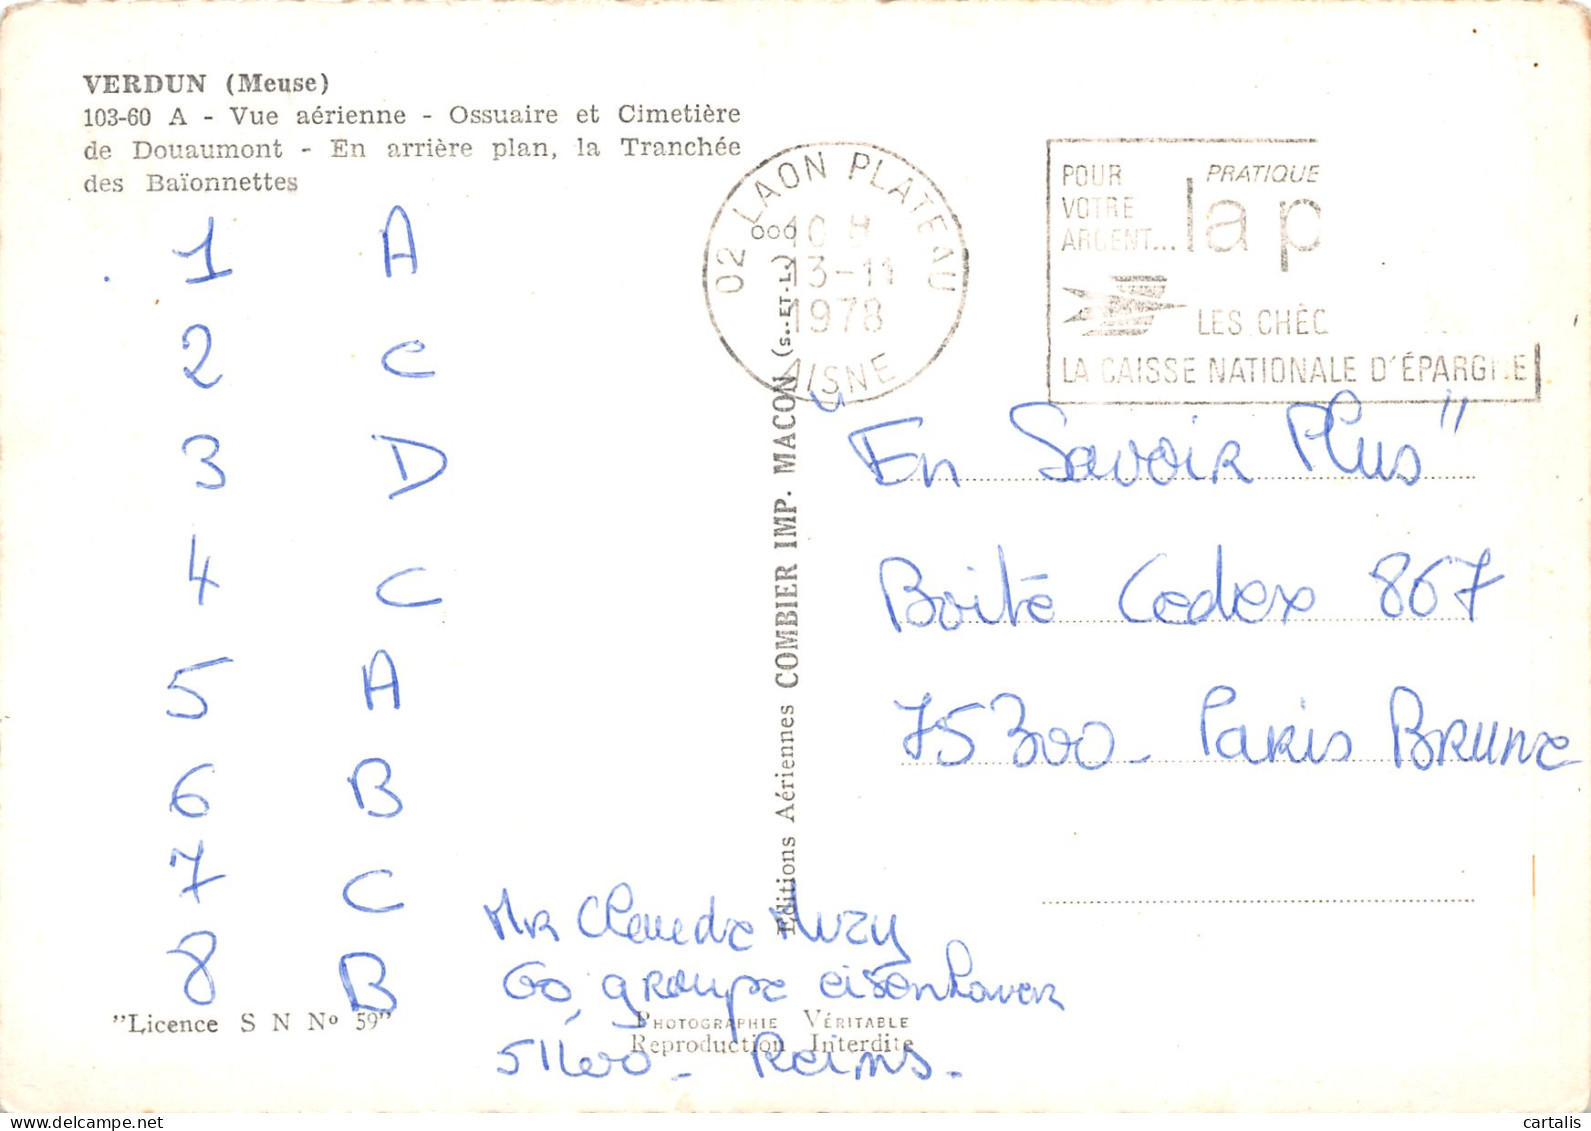 VERDUN (Meuse)
103-60 A - Vue aérienne - Ossuaire et Cimetière
de Douaumont - En arrière plan, la Tranchée
des Baïonnettes
1 A
2 C
3 D
4 C
5 A
6 B
7 C
8 B
"Licence S N Nº 59"
Mr Claude Muzy
60, groupe eisenhover
51100 - Reims.
PHOTOGRAPHIE VÉRITABLE
Reproduction Interdite
Editions Aériennes COMBIER IMP. MACON (S.-ET-L.)
02 LAON PLATEAU
13-11
1978
AISNE
POUR
VOTRE
ARGENT...
PRATIQUE
la p
LES CHÈC
LA CAISSE NATIONALE D'ÉPARGNE
"En Savoir Plus"
Boité Cedex 867
75300 - Paris Brune
cartalis